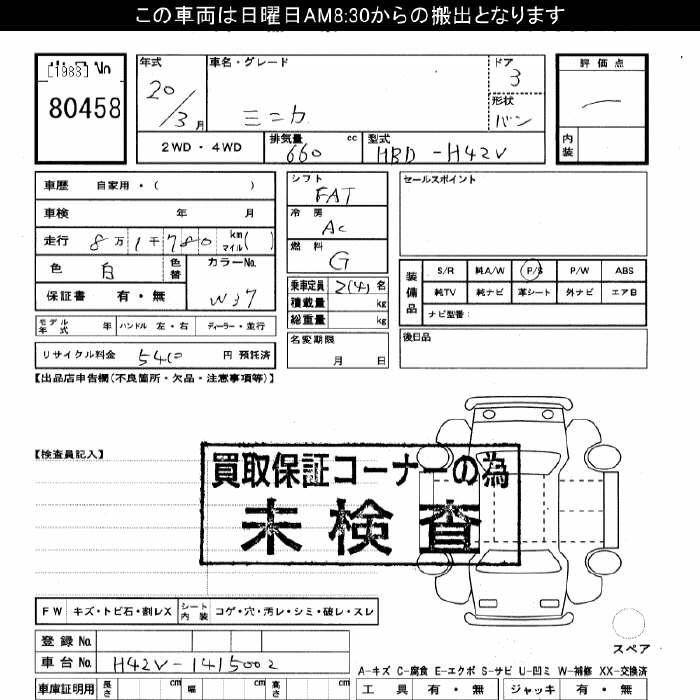 この車両は日曜日AM8:30からの搬出となります
[1983]
80458
年式
20/3月
車名・グレード
ミニカ
ドア
3
形状
バン
評価点
内装
2WD・4WD
排気量 660 cc
型式 HBD-H42V
車歴 自家用・( )
車検 年 月
走行 8万1千780 km マイル( )
色 白 色替
カラーNo. W37
保証書 有・無
モデル年式 年 ハンドル 左・右 ディーラー・並行
リサイクル料金 5410 円 預託済
シフト
FAT
冷房
AC
燃料
G
乗車定員 2(4)名
積載量 kg
総重量 kg
名変期限
月 日
セールスポイント
装備品
S/R 純A/W P/S P/W ABS
純TV 純ナビ 革シート 外ナビ エアB
ナビ型番:
後日品
【出品店申告欄(不良箇所・欠品・注意事項等)】
【検査員記入】
買取保証コーナーの為
未検査
FW キズ・トビ石・割レX シート内装 コゲ・穴・汚レ・シミ・破レ・スレ
登録No.
車台No. H42V-1415002
車庫証明用 長さ cm 幅 cm 高さ cm
スペア
A-キズ C-腐食 E-エクボ S-サビ U-凹ミ W-補修 XX-交換済
工具 有・無 ジャッキ 有・無